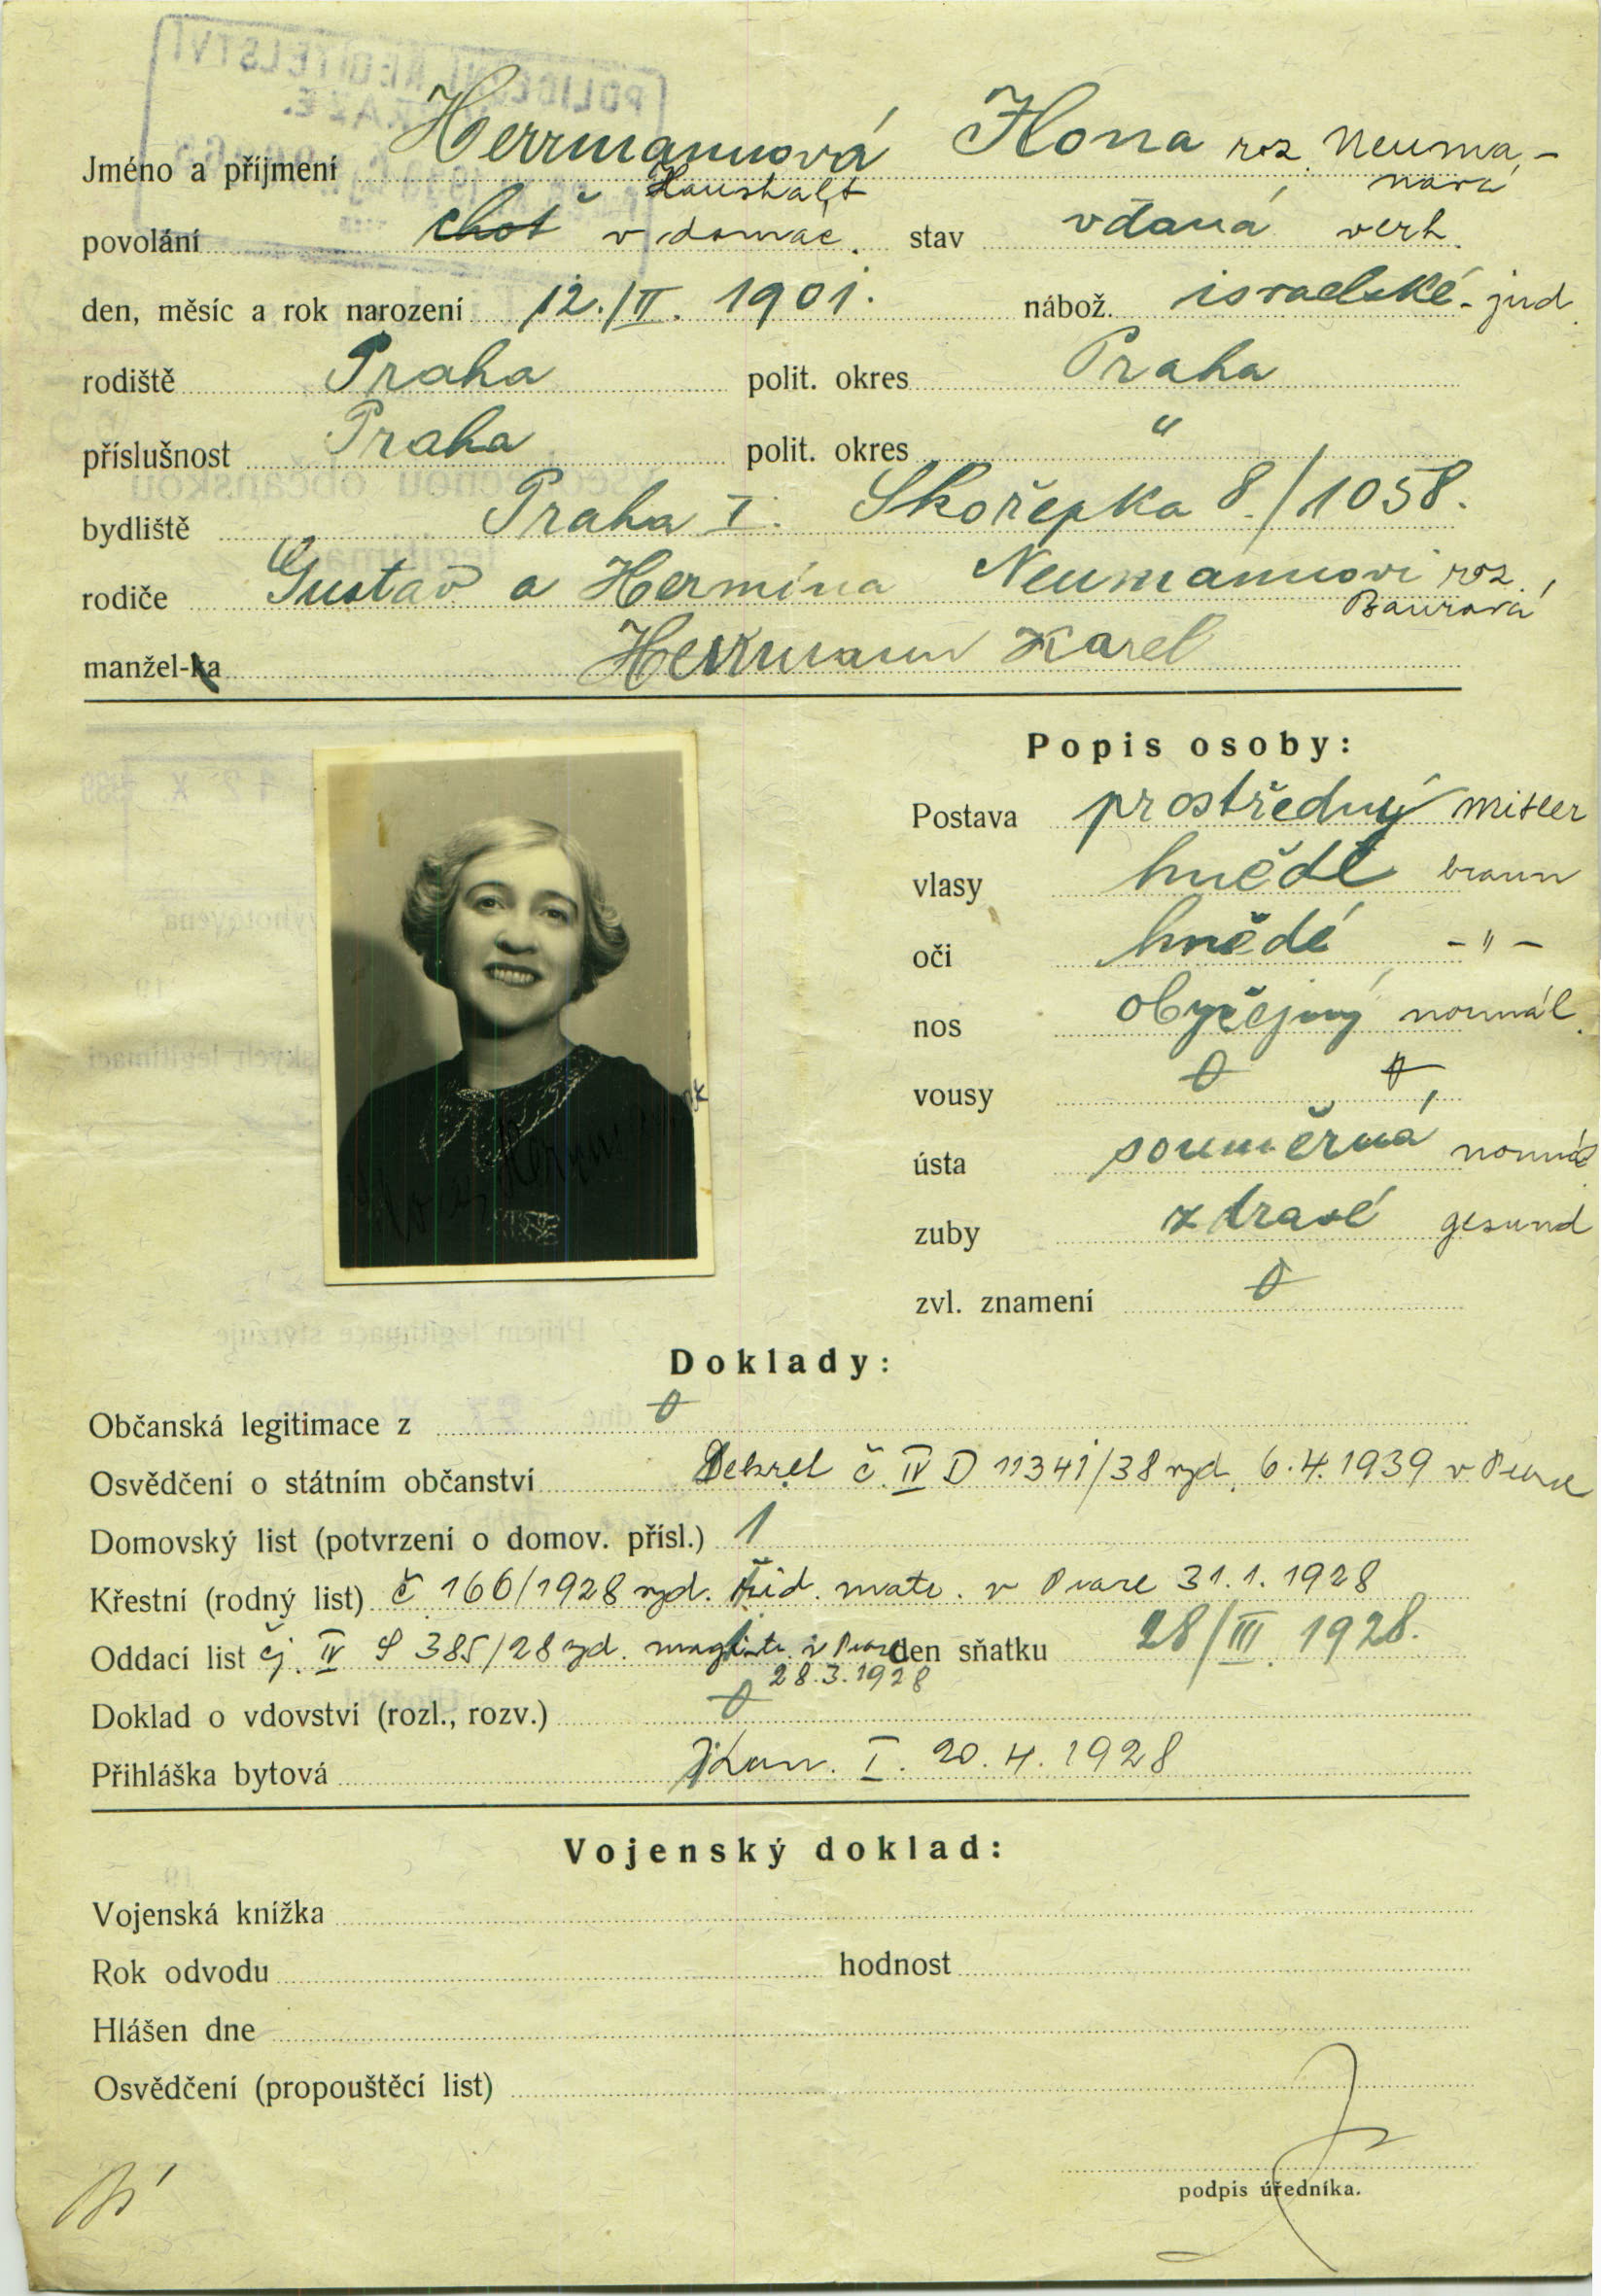 Jméno a příjmení Herrmannová Ilona roz. Neuma-
nová
Haushalt
povolání choť v domác. stav vdaná verh.
den, měsíc a rok narození 12./II. 1901. nábož. israelské - jud.
rodiště Praha polit. okres Praha
příslušnost Praha polit. okres "
bydliště Praha I. Skořepka 8./1058.
rodiče Gustav a Hermína Neumannovi roz.
Baurová
manžel-ka Herrmann Karel
Popis osoby:
Postava prostředný mittler
vlasy hnědé braun
oči hnědé - " -
nos obyčejný normál.
vousy 0 0
ústa souměrná normál
zuby zdravé gesund
zvl. znamení 0
Doklady:
Občanská legitimace z 0
Osvědčení o státním občanství Dekret č. IV D 11341/38 vyd. 6.4.1939 v Praze
Domovský list (potvrzení o domov. přísl.) 1
Křestní (rodný list) č 166/1928 vyd. žid. matr. v Praze 31.1.1928
Oddací list čj. IV S 385/28 vyd. magistr. v Praze den sňatku 28/III. 1928.
28.3.1928
Doklad o vdovství (rozl., rozv.) 0
Přihláška bytová Kom. I. 20.4.1928
Vojenský doklad:
Vojenská knížka
Rok odvodu hodnost
Hlášen dne
Osvědčení (propouštěcí list)
podpis úředníka.